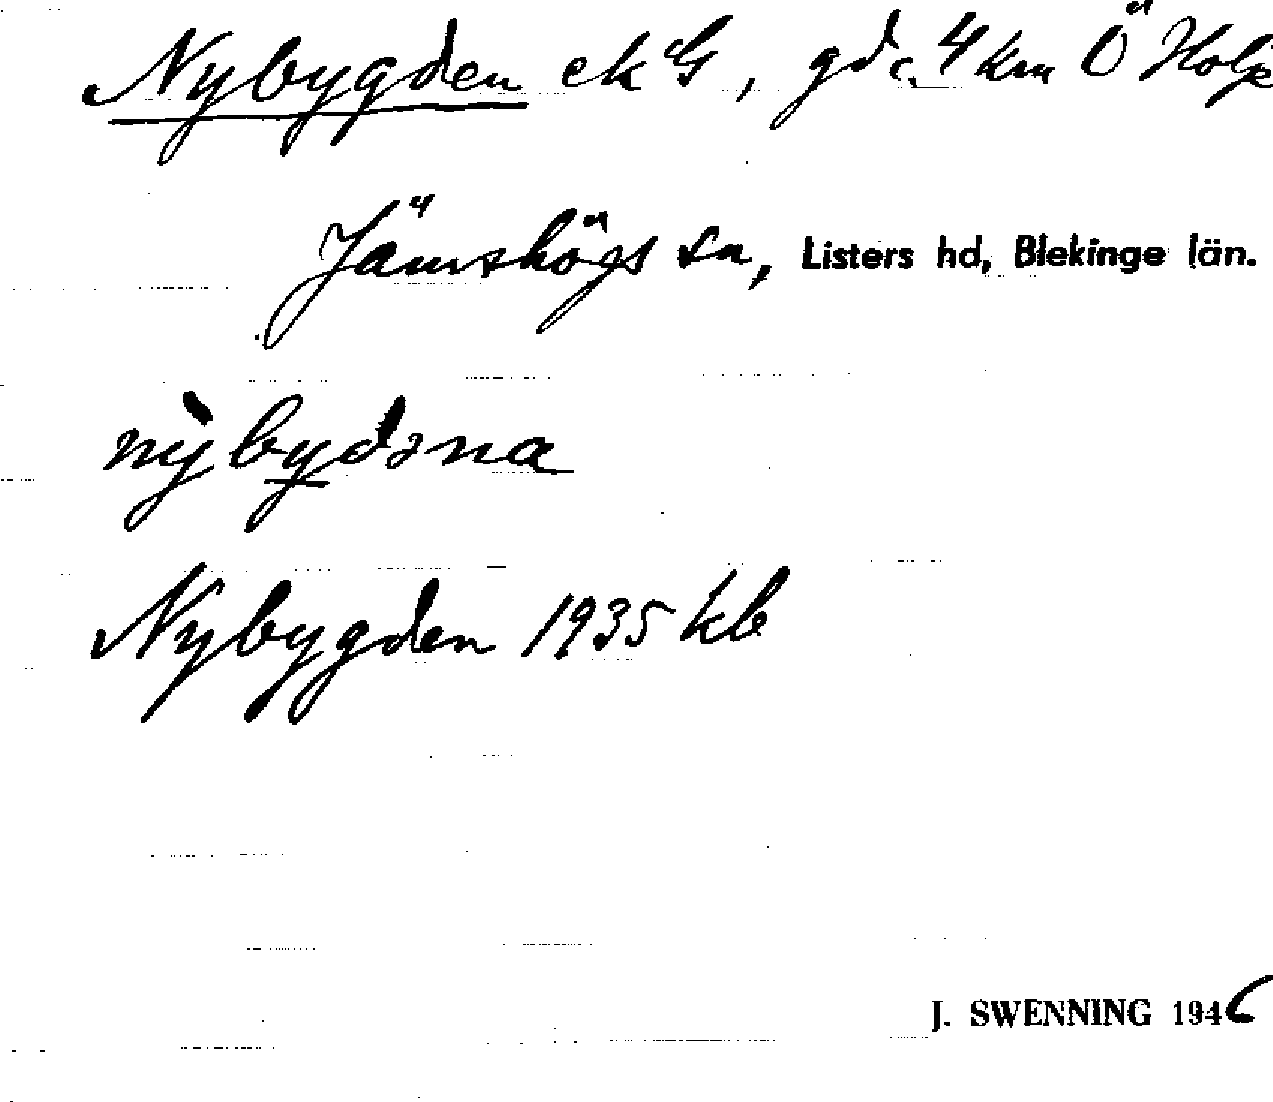 Nybygden ek G, gd c. 4 km Ö Holje
Jämshögs sn, Listers hd, Blekinge län.
nỳbydəna
Nybygden 1935 kb
J. SWENNING 1946